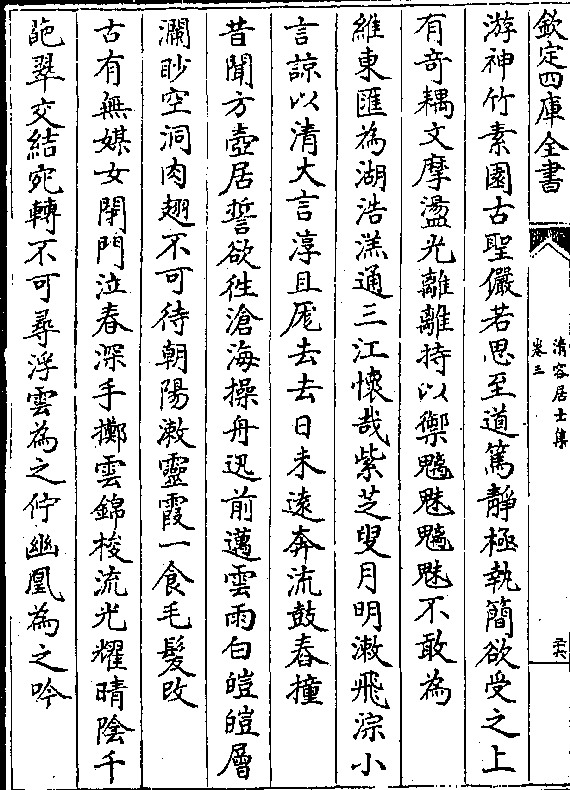 欽定四庫全書
清容居士集
卷三
游神竹素園古聖儼若思至道篤靜極執簡欲受之上
有奇耦文摩盪光離離持以禦魑魅魑魅不敢為
維東匯為湖浩溔通三江懷哉紫芝叟月明漱飛淙小
言諒以清大言淳且厖去去日未遠奔流鼓舂撞
昔聞方壺居誓欲往滄海操舟迅前邁雲雨白皚皚層
瀾眇空洞肉翅不可待朝陽漱靈霞一食毛髮改
古有無媒女閉門泣春深手擲雲錦梭流光耀晴陰千
葩翠交結宛轉不可尋浮雲為之佇幽凰為之吟